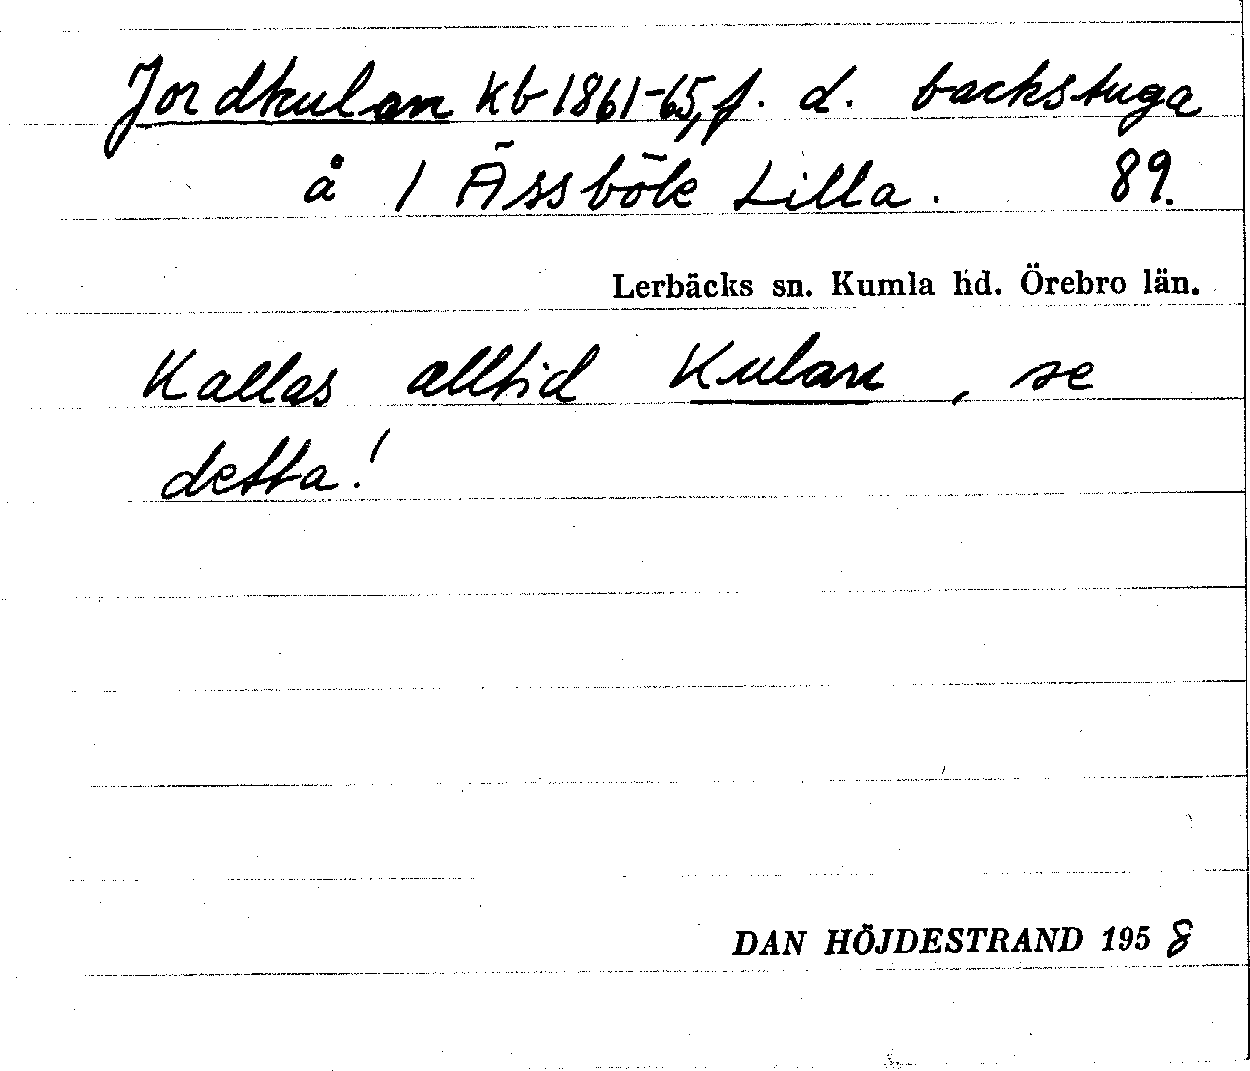 Jordkulan kb 1861-65, f. d. backstuga
å 1 Ässböle Lilla. 89.
Lerbäcks sn. Kumla hd. Örebro län.
Kallas alltid Kulan, se
detta!
DAN HÖJDESTRAND 1958